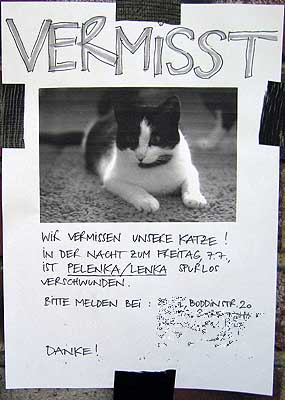 VERMISST
WIR VERMISSEN UNSERE KATZE!
IN DER NACHT ZUM FREITAG, 7.7.,
IST PELENKA/LENKA SPURLOS
VERSCHWUNDEN.
BITTE MELDEN BEI: BODDINSTR. 20
DANKE!